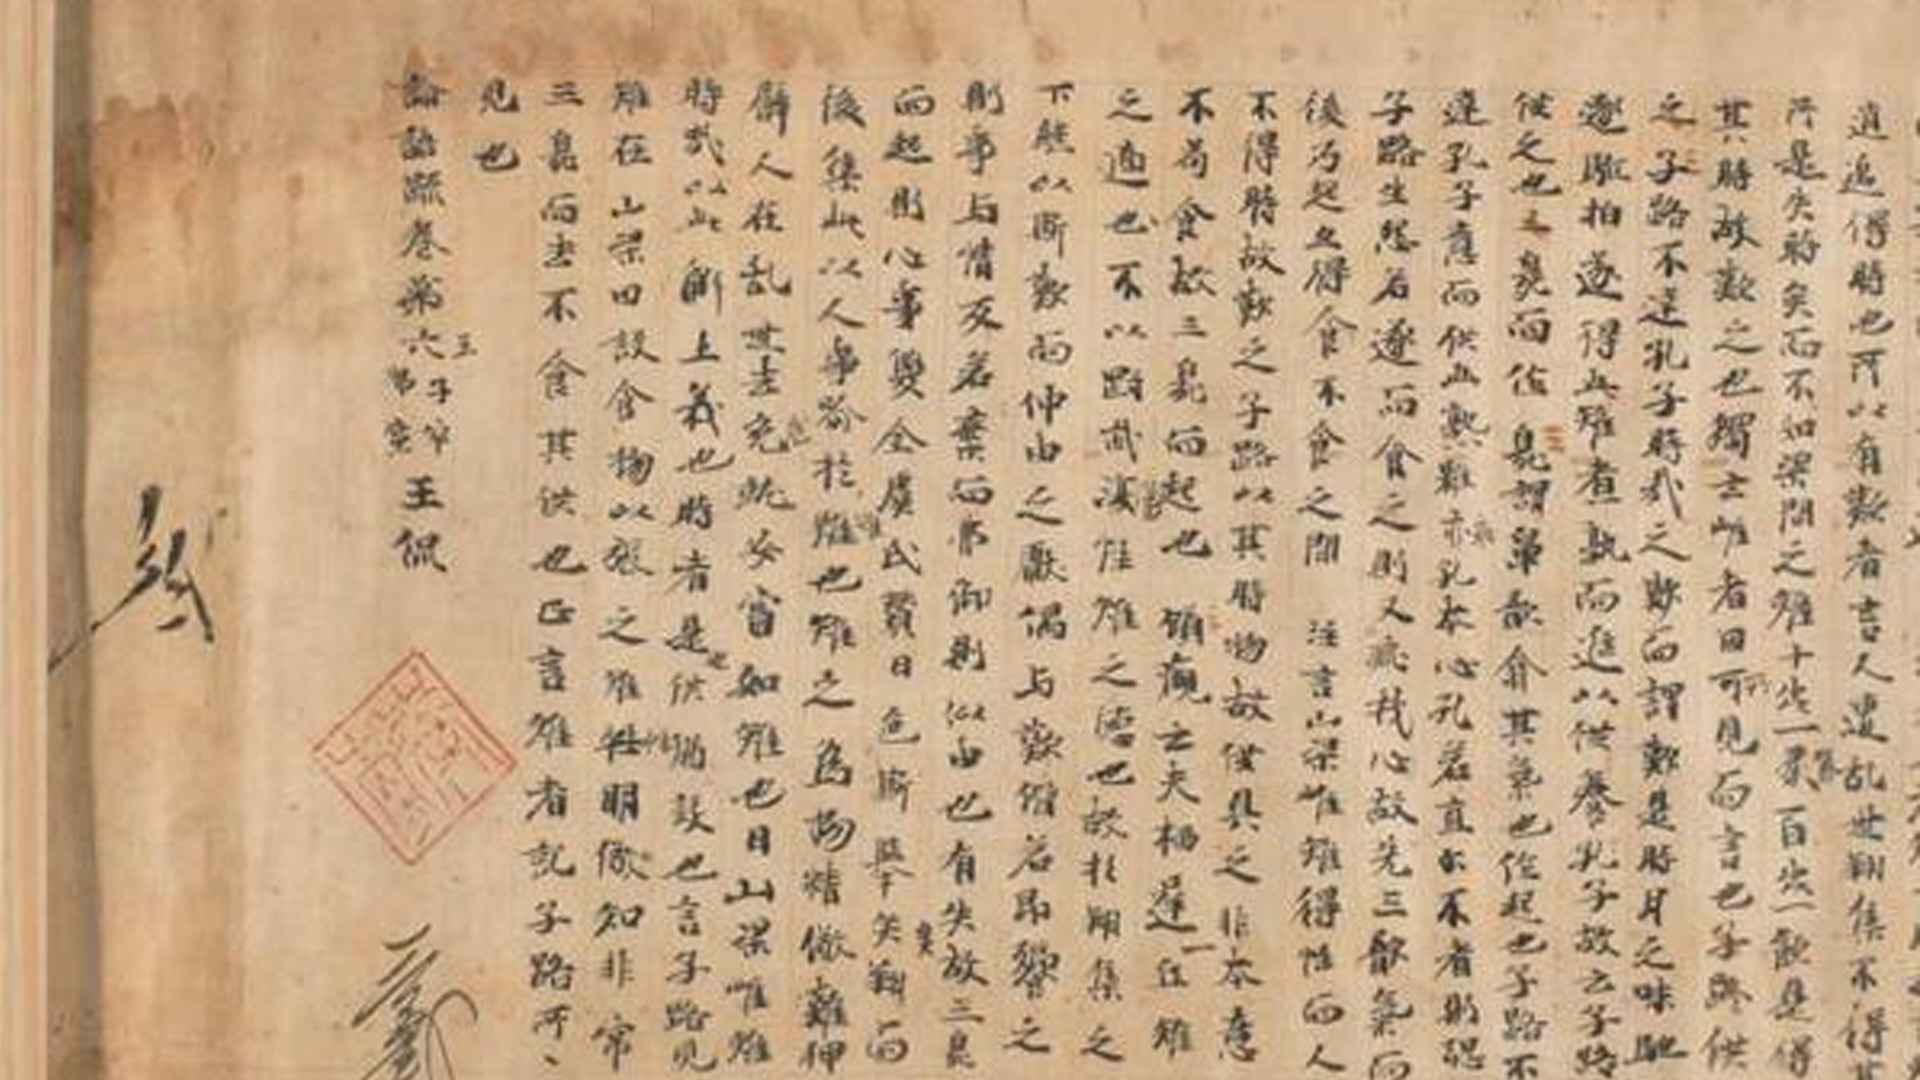 逍遥得時也所以有歎者言人遭乱世翔集不得其
所是失時矣而不如梁間之雉十歩一啄百歩一飲是得
其時故歎之也獨云雌者因所見而言也子路供
之子路不達孔子時哉之歎而謂歎是時月之味馳
逐駈拍遂得此雉煮熟而進以供養孔子故云子路
供之也三臭而作臭謂鼻歆翕其氣也作起也子路不
達孔子意而供此熟雉乖孔子本心孔若直尓不者則恐
子路生怨若遂而食之則又乖我心故先三歆氣而
後乃起亦得食不食之間 注言山梁雌雉得性而人
不得時故歎之子路以其時物故供具之非本意
不苟食故三臭而起也 顧歡云夫栖遅一丘雉
之適也不以剛武傷性雉之德也故於翔集之
下繼以斯歎而仲由之獻偶与歎偕若即饗之
則事与情反若棄而弗御則似由也有失故三臭
而起則心事雙全虞氏賛曰色斯舉矣翔而
後集此以人事喩於雉也雉之為物精儆難狎
譬人在乱世去危就安當如雉也曰山梁雌雉
時哉以此解上義也時者是供猶設也言子路見
雉在山梁因設食物以張之雉性明儆知非常
三臭而去不食其供也正言雌者記子路所
見也
論語疏巻第六 王侃